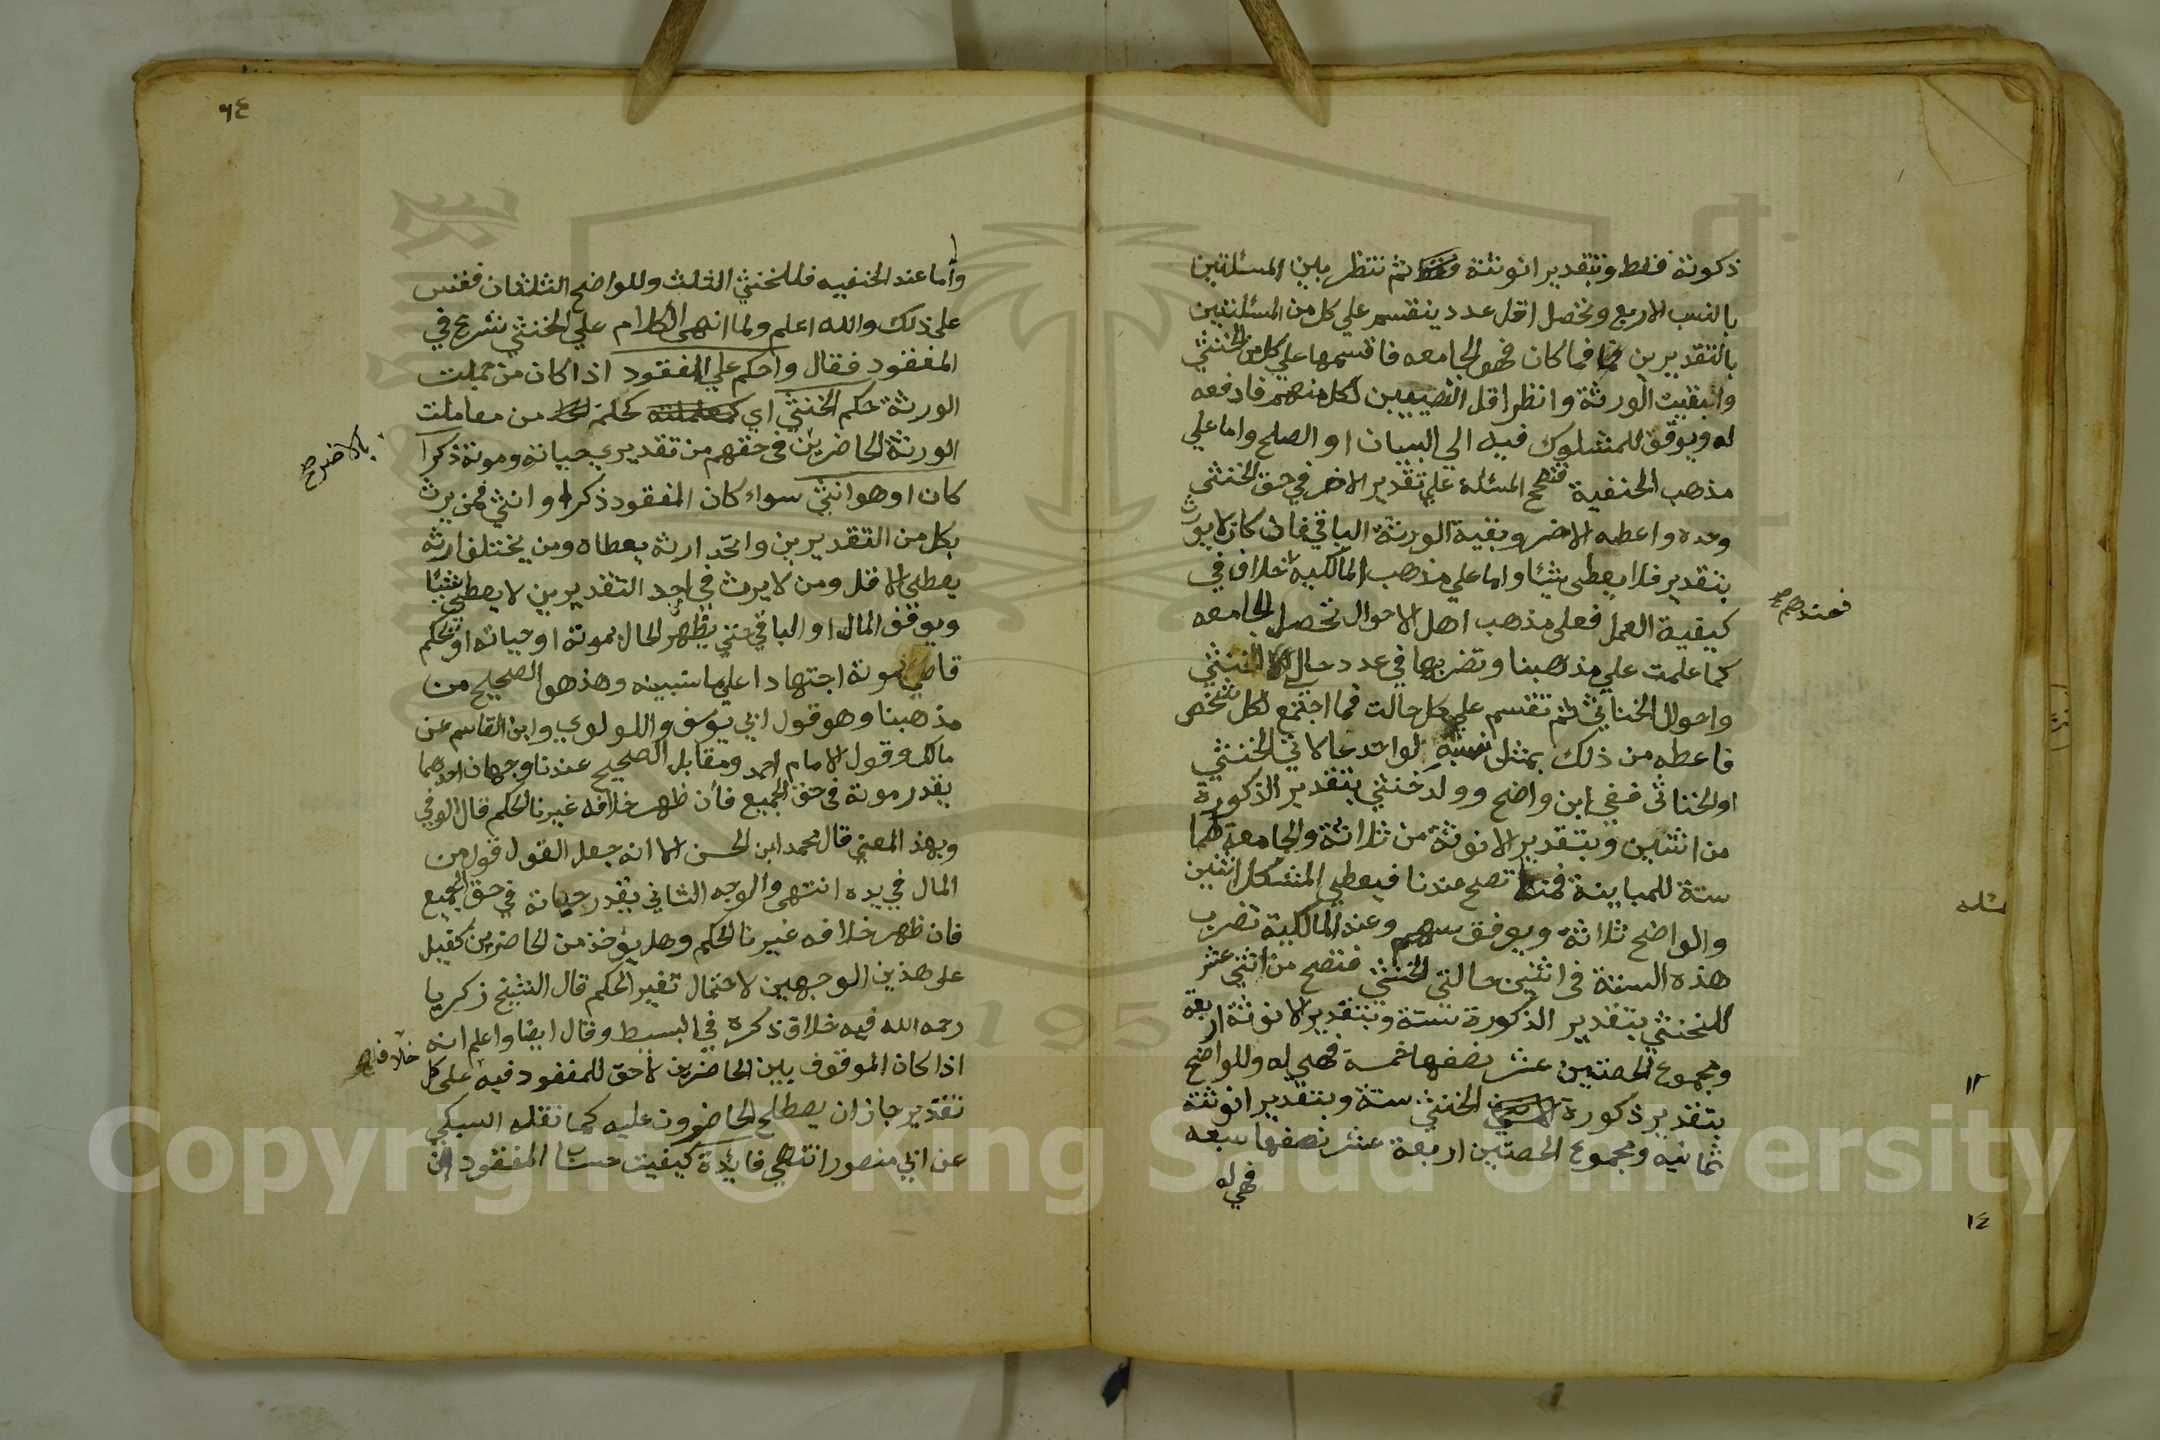 ذكورته فقط وبتقدير انوثته ثم تنظر بين المسئلتين
بالنسب الاربع وتحصل اقل عدد ينقسم علي كل من المسئلتين
بالتقديرين فما كان فهو الجامعه فاقسمها علي كل من الخنثي
وابقيت الورثة وانظر اقل النصيبين لكل منهم فادفعه
له ويوقف للمشلوك فيه الى البيان او الصلح واما علي
مذهب الحنفية فتصحح المسئلة علي تقدير الاضر في حق الخنثي
وحده واعطه الاضر وبقية الورثة الباقي فان كان لا يورث
بتقدير فلا يعطى شئا واما علي مذهب المالكيه خلاف في
فعندهم صح
كيفية العمل فعلى مذهب اهل الاحوال تحصل الجامعه
كما علمت علي مذهبنا وتضربها في عدد حال الخنثي
واحوال الخناثي ثم تقسم علي كل حالت فما اجتمع لكل شخص
فاعطه من ذلك بمثل نسبة لواحد حالاتي الخنثي
او الخناثى ففي ابن واضح وولد خنثي بتقدير الذكورة
من اثنين وبتقدير الانوثة من ثلاثة والجامعة لهما
ستة للمباينة فمنها تصح عندنا فيعطي المشكل اثنين
مثله
والواضح ثلاثة ويوقف سهم وعند المالكية تضرب
هذه الستة في اثنين حالتي الخنثي فتصح من اثني عشر
للخنثي بتقدير الذكورة ستة وبتقدير الانوثة اربعة
ومجموع الحصتين عشر نصفها خمسة فهي له وللواضح
١٢
بتقدير ذكورة الخنثي ستة وبتقدير انوثته
ثمانيه ومجموع الحصتين اربعة عشر نصفها سبعه
فهي له
١٤
٩٤
وأما عند الحنفيه فللخنثي الثلث وللواضح الثلثان فقس
على ذلك والله اعلم ولما انهى الكلام علي الخنثي شرع في
المفقود فقال واحكم علي المفقود اذا كان من جملت
الورثة حكم الخنثي اي كحلمة من معاملت
الورثة الحاضرين في حقهم من تقديري حياته وموته ذكرا
بالاضر صح
كان او هو انثي سواء كان المفقود ذكرا وانثي فمن يرث
بكل من التقديرين واتحد ارثه يعطاه ومن يختلف ارثه
يعطى الاقل ومن لا يرث في احد التقديرين لا يعطى شئا
ويوقف المال او الباقي حتي يظهر لحال بموته او حياته او يحكم
قاض بموته اجتهادا علي ما سنبينه وهذا هو الصحيح من
مذهبنا وهو قول ابي يوسف واللولوي وابن القاسم عن
مالك وقول الامام احمد ومقابل الصحيح عندنا وجهان احدهما
يقدر موته في حق الجميع فأن ظهر خلافه غيرنا الحكم قال الوفي
وبهذ المعني قال محمد ابن الحسن الا انه جعل القول قول من
المال في يده انتهى والوجه الثاني يقدر حياته في حق الجميع
فان ظهر خلافه غيرنا الحكم وهل يؤخذ من الحاضرين كفيل
على هذين الوجهين لاحتمال تغير الحكم قال الشيخ زكريا
رحمه الله فيه خلاف ذكره في البسيط وقال ايضا واعلم انه
اذا كان الموقوف بين الحاضرين لاحق للمفقود فيه على كل
تقدير جاز ان يصطلح الحاضرون عليه كما نقله السبكي
عن ابي منصور انتهي فايدة كيفيت حساب المفقود ان
Copyright © King Saud University